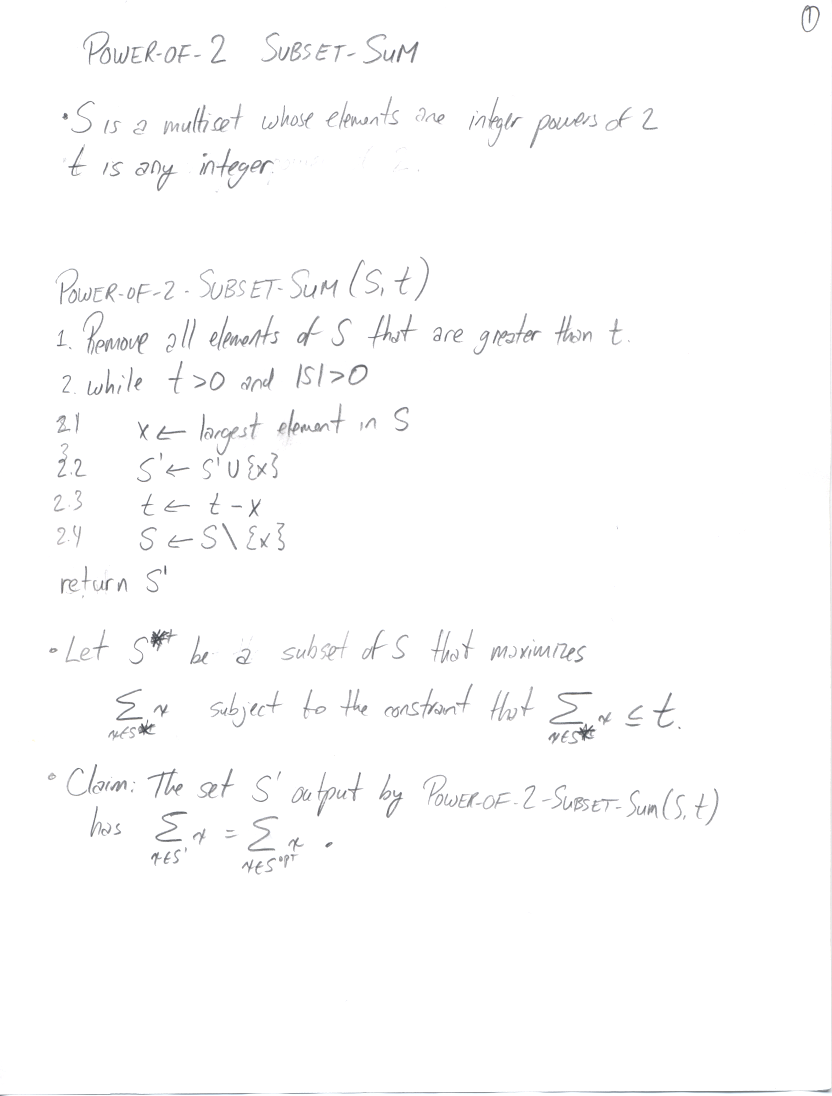 ①
POWER-OF-2 SUBSET-SUM
• S is a multiset whose elements are integer powers of 2
t is any integer.
POWER-OF-2-SUBSET-SUM (S, t)
1. Remove all elements of S that are greater than t.
2. while t>0 and |S|>0
2.1 x ← largest element in S
2.2 S' ← S' ∪ {x}
2.3 t ← t - x
2.4 S ← S \ {x}
return S'
• Let S* be a subset of S that maximizes
∑ x∈S* x subject to the constraint that ∑ x∈S* x ≤ t.
• Claim: The set S' output by POWER-OF-2-SUBSET-SUM (S, t)
has ∑ x∈S' x = ∑ x∈S^OPT x .